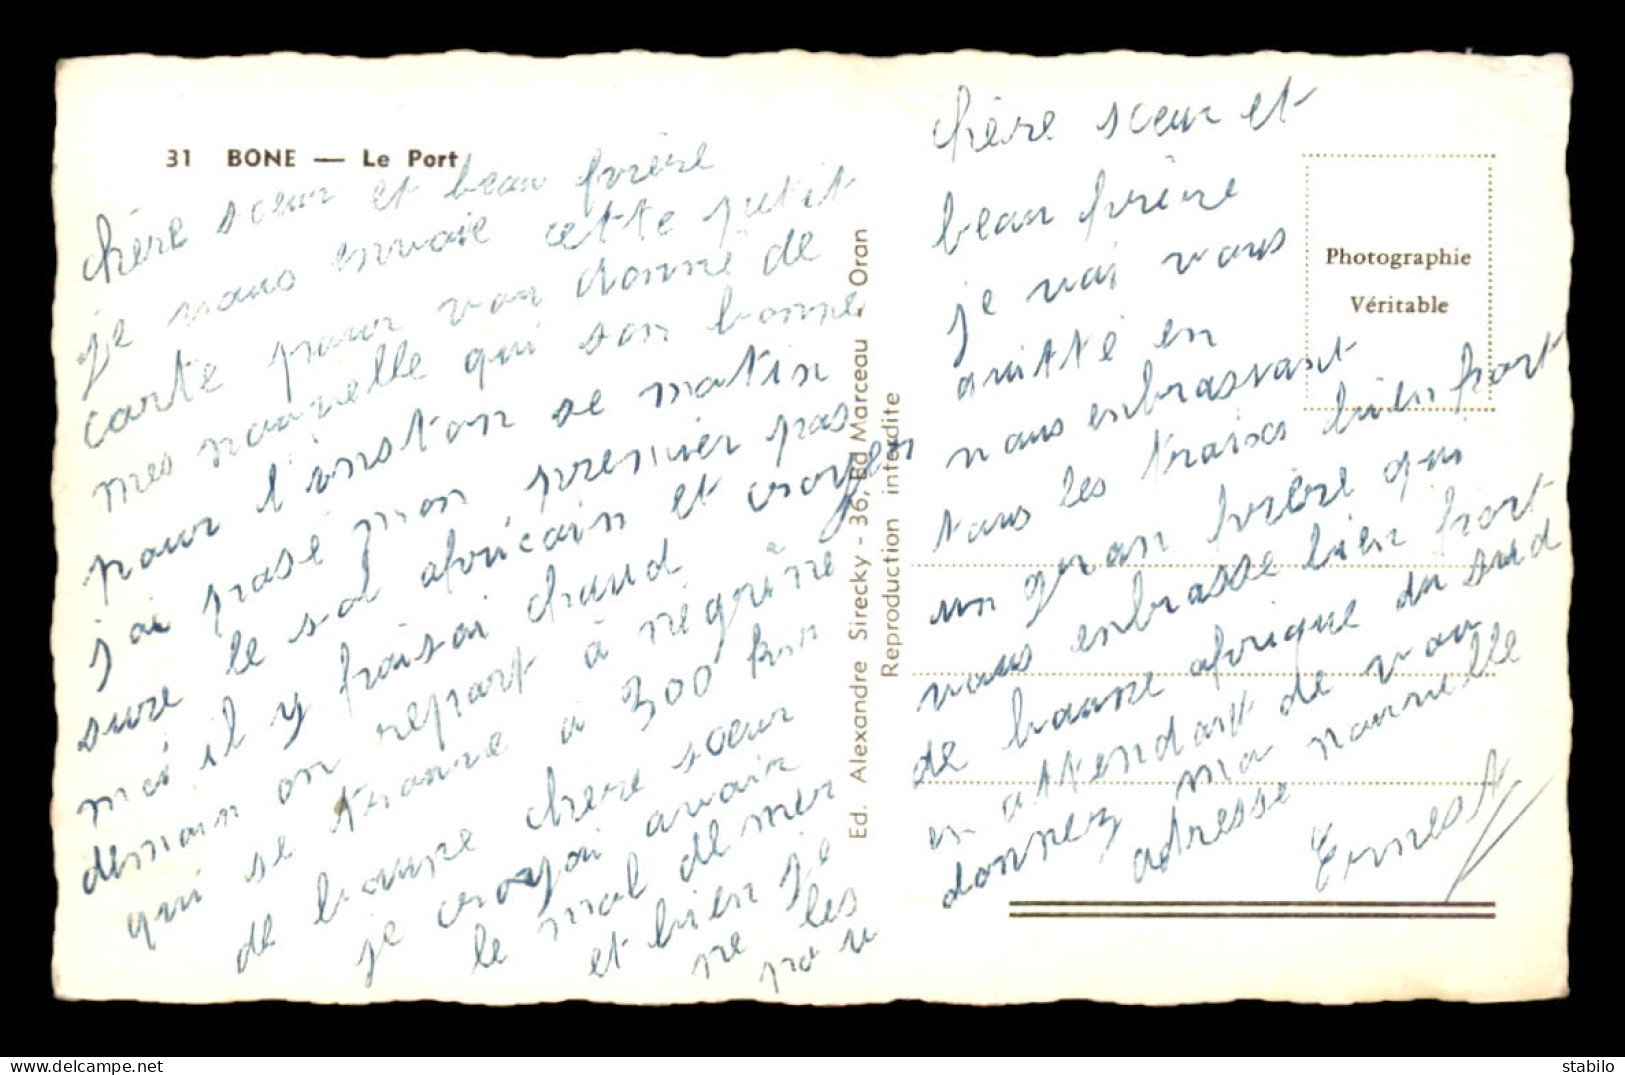 31 BONE — Le Port
chère sœur et beau frère
je vous envoie cette petit
carte pour vou donné de
mes nouvelle qui son bonne
pour l'instan se matin
j'ai pasé mon premier pas
sure le sol africain et croyer
moi il y fraisai chaud
demain on repart à négrine
qui se trouve a 300 km
de baune chère sœur
je croyai avoir
le mal de mer
et bien je
ne les
pa u
Ed. Alexandre Sirecky - 36, Bd Marceau Oran
Reproduction interdite
chère sœur et
beau frère
je vai vous
quitté en
vous enbrassant
tous les trois bien fort
un gran frère qui
vous enbrasse bien fort
de baune afrique du sud
en attendant de vou
donnez ma nouvelle
adresse
Ernest
Photographie
Véritable
delcampe.net
stabilo